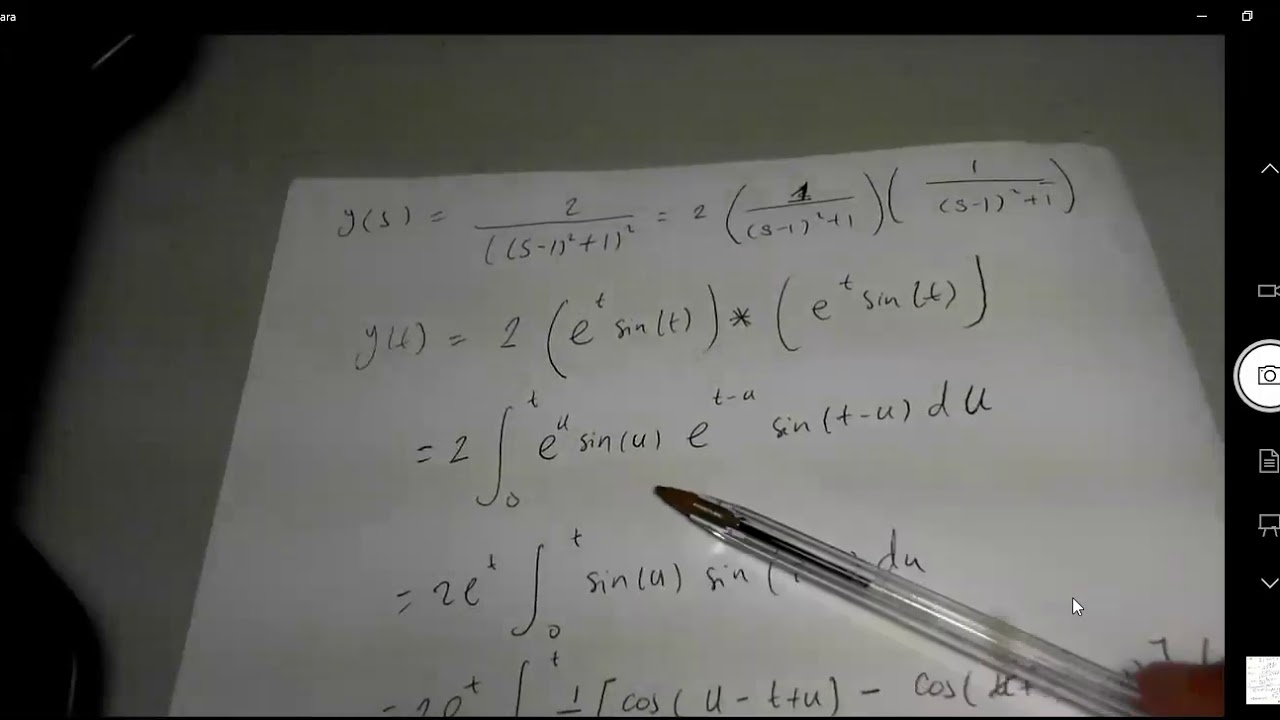 ara
y(s) = 2 / ((s-1)²+1)² = 2 (1 / (s-1)²+1) (1 / (s-1)²+1)
y(t) = 2 (e^t sin(t)) * (e^t sin(t))
= 2 ∫₀^t e^u sin(u) e^(t-u) sin(t-u) du
= 2e^t ∫₀^t sin(u) sin ( du
= 2e^t ∫^t 1 [cos(u-t+u) - cos(